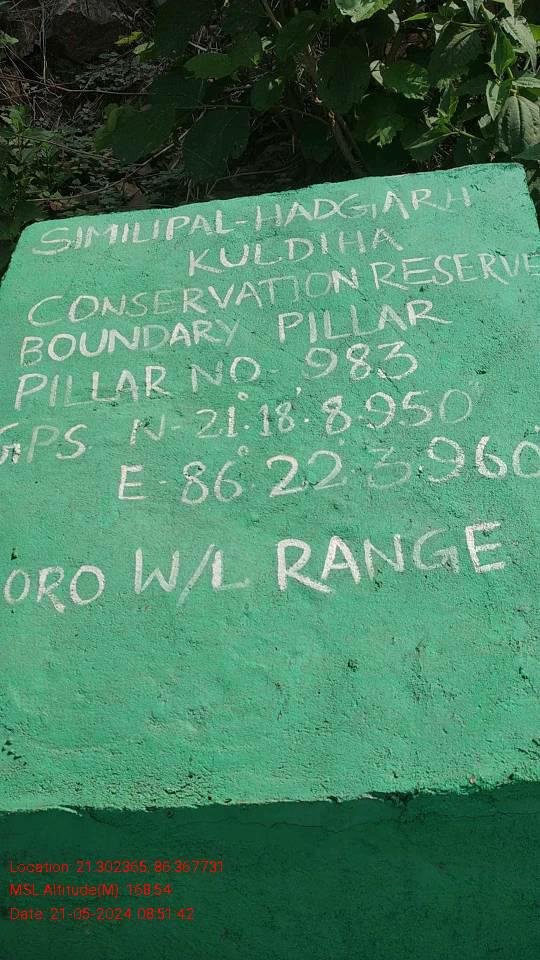 SIMILIPAL-HADGARH
KULDIHA
CONSERVATION RESERVE
BOUNDARY PILLAR
PILLAR NO- 983
GPS N- 21°.18'.8.950"
E-86°.22'.3.960
ORO W/L RANGE
Location: 21.302365, 86.367731
MSL.Altitude(M): 168.54
Date: 21-05-2024 08:51:42